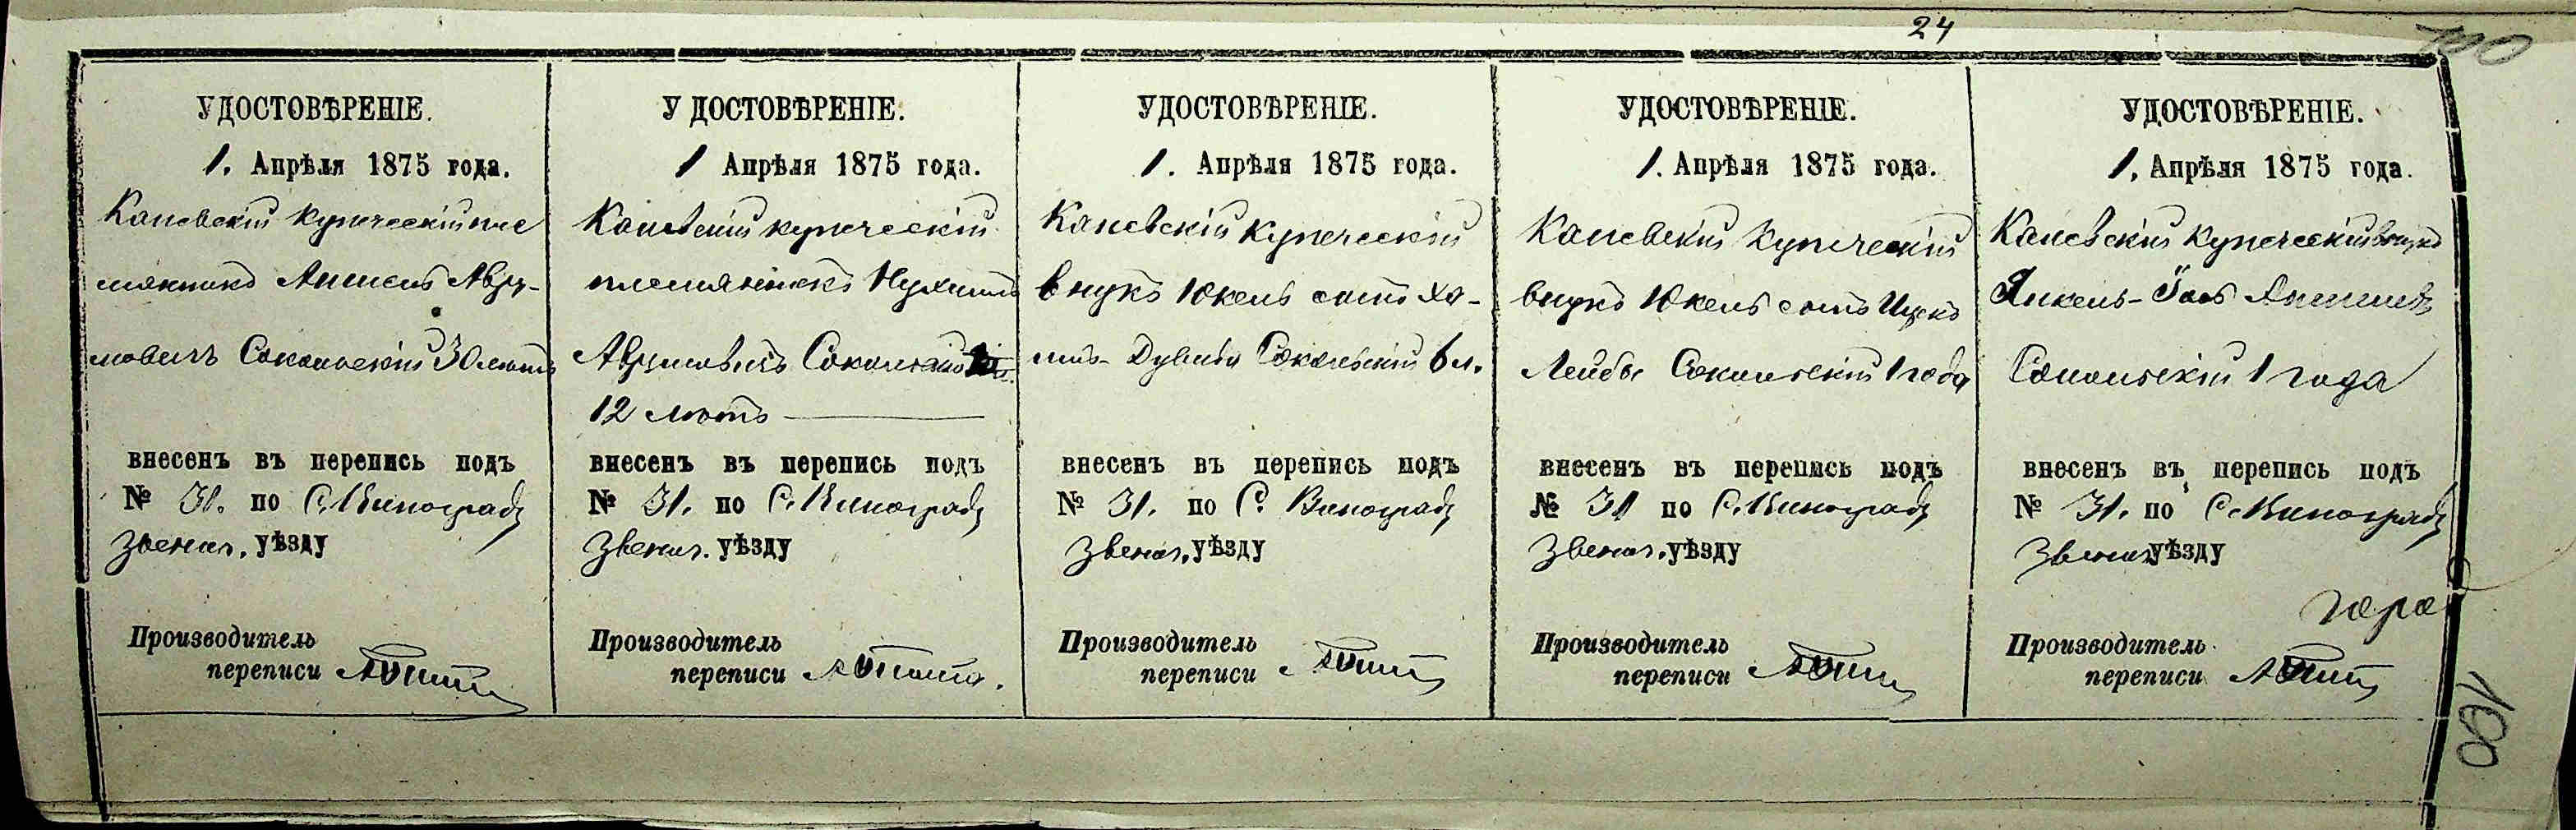 24
100
УДОСТОВѢРЕНІЕ.
1. Апрѣля 1875 года.
Каневскій купеческій пле
мянникъ Аншель Авру-
мовичъ Сокольскій 30 лѣтъ
внесенъ въ перепись подъ
№ 31. по С. Виноградъ
Звениг. уѣзду
Производитель
переписи
УДОСТОВѢРЕНІЕ.
1 Апрѣля 1875 года.
Каневскій купеческій
племянникъ Нухимъ
Аврумовичъ Сокольскій
12 лѣтъ
внесенъ въ перепись подъ
№ 31. по С. Виноградъ
Звениг. уѣзду
Производитель
переписи
УДОСТОВѢРЕНІЕ.
1. Апрѣля 1875 года.
Каневскій купеческій
внукъ Юкель сынъ Ха-
имъ-Дувида Сокольскій 6 л.
внесенъ въ перепись подъ
№ 31. по С. Виноградъ
Звениг. уѣзду
Производитель
переписи
УДОСТОВѢРЕНІЕ.
1. Апрѣля 1875 года.
Каневскій купеческій
внукъ Юкель сынъ Ицекъ
Лейбы Сокольскій 1 года
внесенъ въ перепись подъ
№ 31 по С. Виноградъ
Звениг. уѣзду
Производитель
переписи
УДОСТОВѢРЕНІЕ.
1. Апрѣля 1875 года.
Каневскій купеческій внукъ
Янкель-Іось Аншелевъ
Сокольскій 1 года
внесенъ въ перепись подъ
№ 31. по С. Виноградъ
Звениг. уѣзду
Производитель
переписи
100